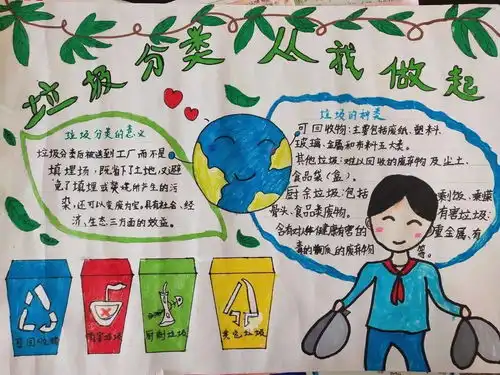 垃圾分类 从我做起
垃圾分类的意义
垃圾分类后被送到工厂而不是
填埋场，既省下土地，又避
免了填埋或焚烧所产生的污
染，还可以变废为宝。具有社会、经
济、生态三方面的效益。
垃圾的种类
可回收物：主要包括废纸、塑料、
玻璃、金属和布料五大类。
其他垃圾：难以回收的废弃物及尘土、
食品袋（盒）。
厨余垃圾：包括 剩饭、剩菜
骨头、食品类废物。 有害垃圾：
含有对人体健康有害的 重金属、有
毒的 的废弃物 等。
可回收物
有害垃圾
厨剩垃圾
其它垃圾